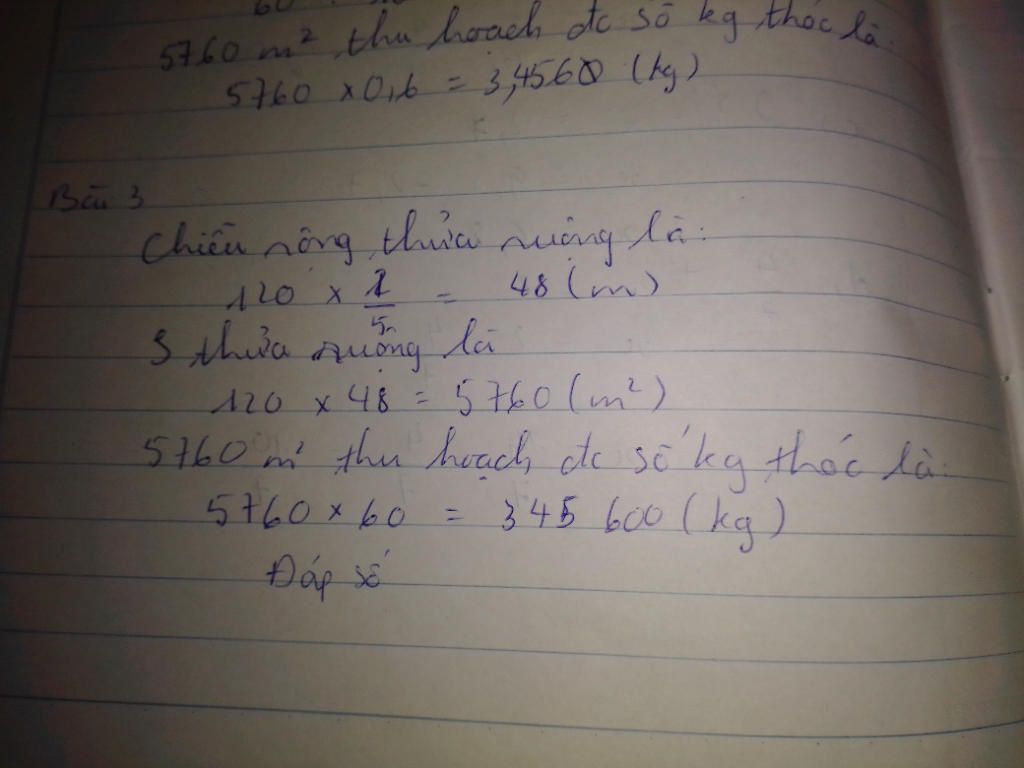 60
5760 m² thu hoạch đc số kg thóc là:
5760 x 0,6 = 3,4560 (kg)
Bài 3
Chiều rộng thửa ruộng là:
120 x 2/5 = 48 (m)
S thửa ruộng là
120 x 48 = 5760 (m²)
5760 m² thu hoạch đc số kg thóc là:
5760 x 60 = 345 600 (kg)
Đáp số